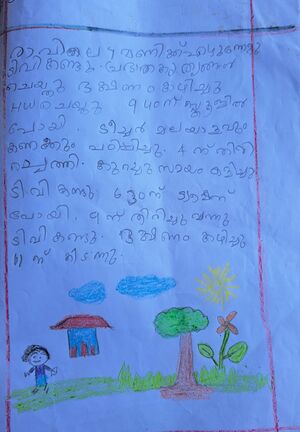 രാവിലെ 7 മണിക്ക് എഴുന്നേറ്റു
ടിവി കണ്ടു. പ്രഭാതകൃത്യങ്ങൾ
ചെയ്തു ഭക്ഷണം കഴിച്ചു
HW ചെയ്തു 9 40ന് സ്കൂളിൽ
പോയി. ടീച്ചർ മലയാളവും
കണക്കും പഠിപ്പിച്ചു. 4 ന്
കുറച്ചു സമയം കളിച്ചു.
ടിവി കണ്ടു 6 30ന് ട്യൂഷന്
പോയി. 9 ന് തിരിച്ചു വന്നു
ടിവി കണ്ടു. ഭക്ഷണം കഴിച്ചു
ന് കിടന്നു.